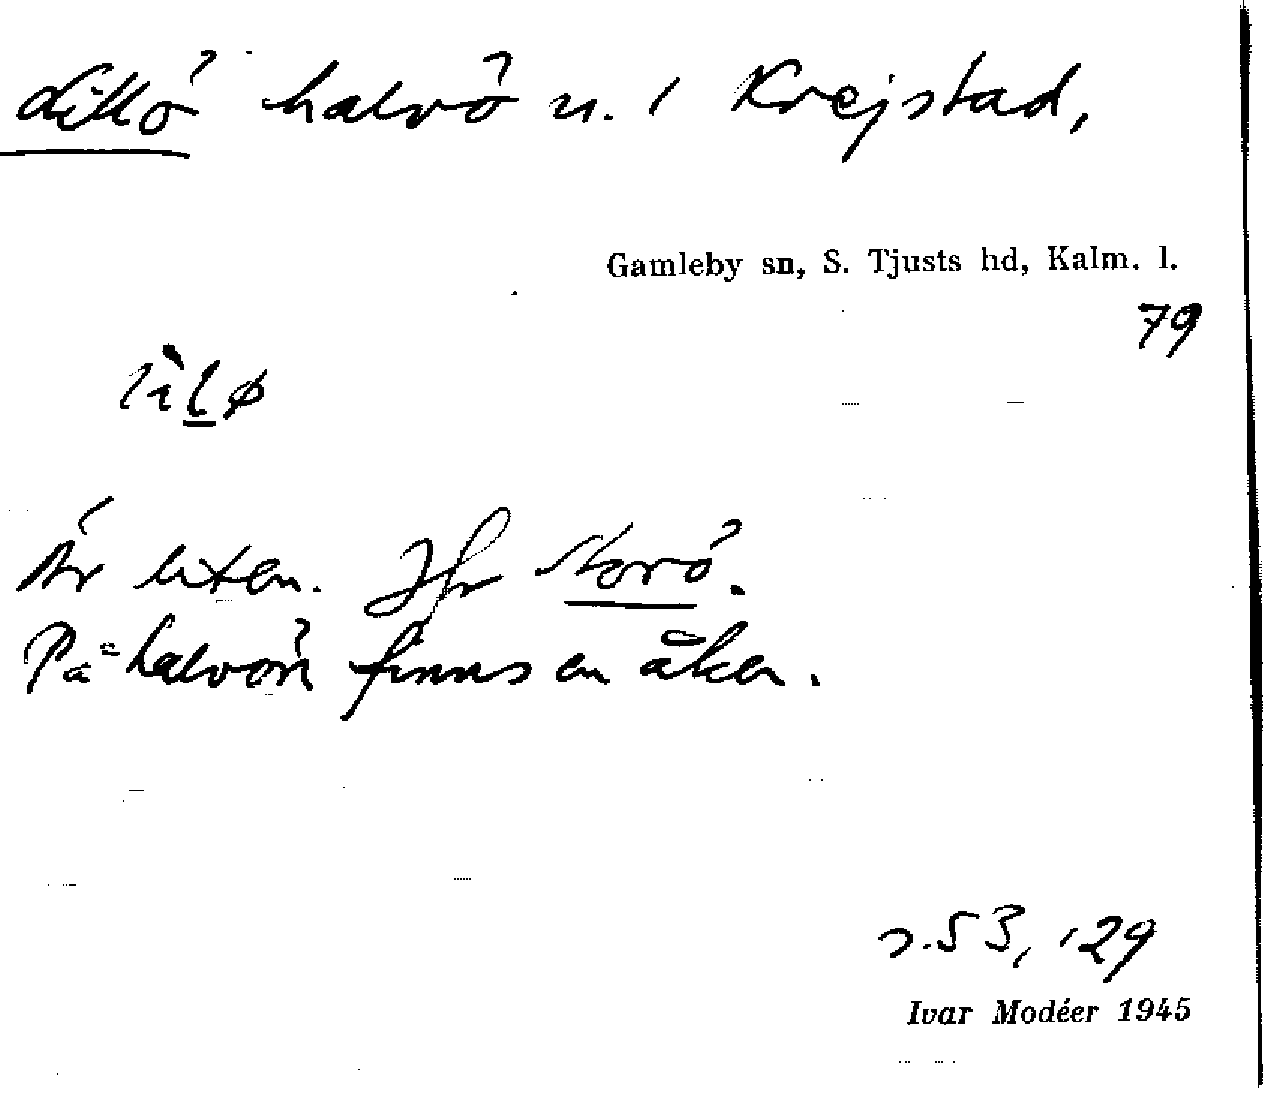 Lillö halvö n. 1 Krejstad,
Gamleby sn, S. Tjusts hd, Kalm. l.
79
Är liten. Jfr Storö.
På halvön finns en åker.
s. 53, 129
Ivar Modéer 1945